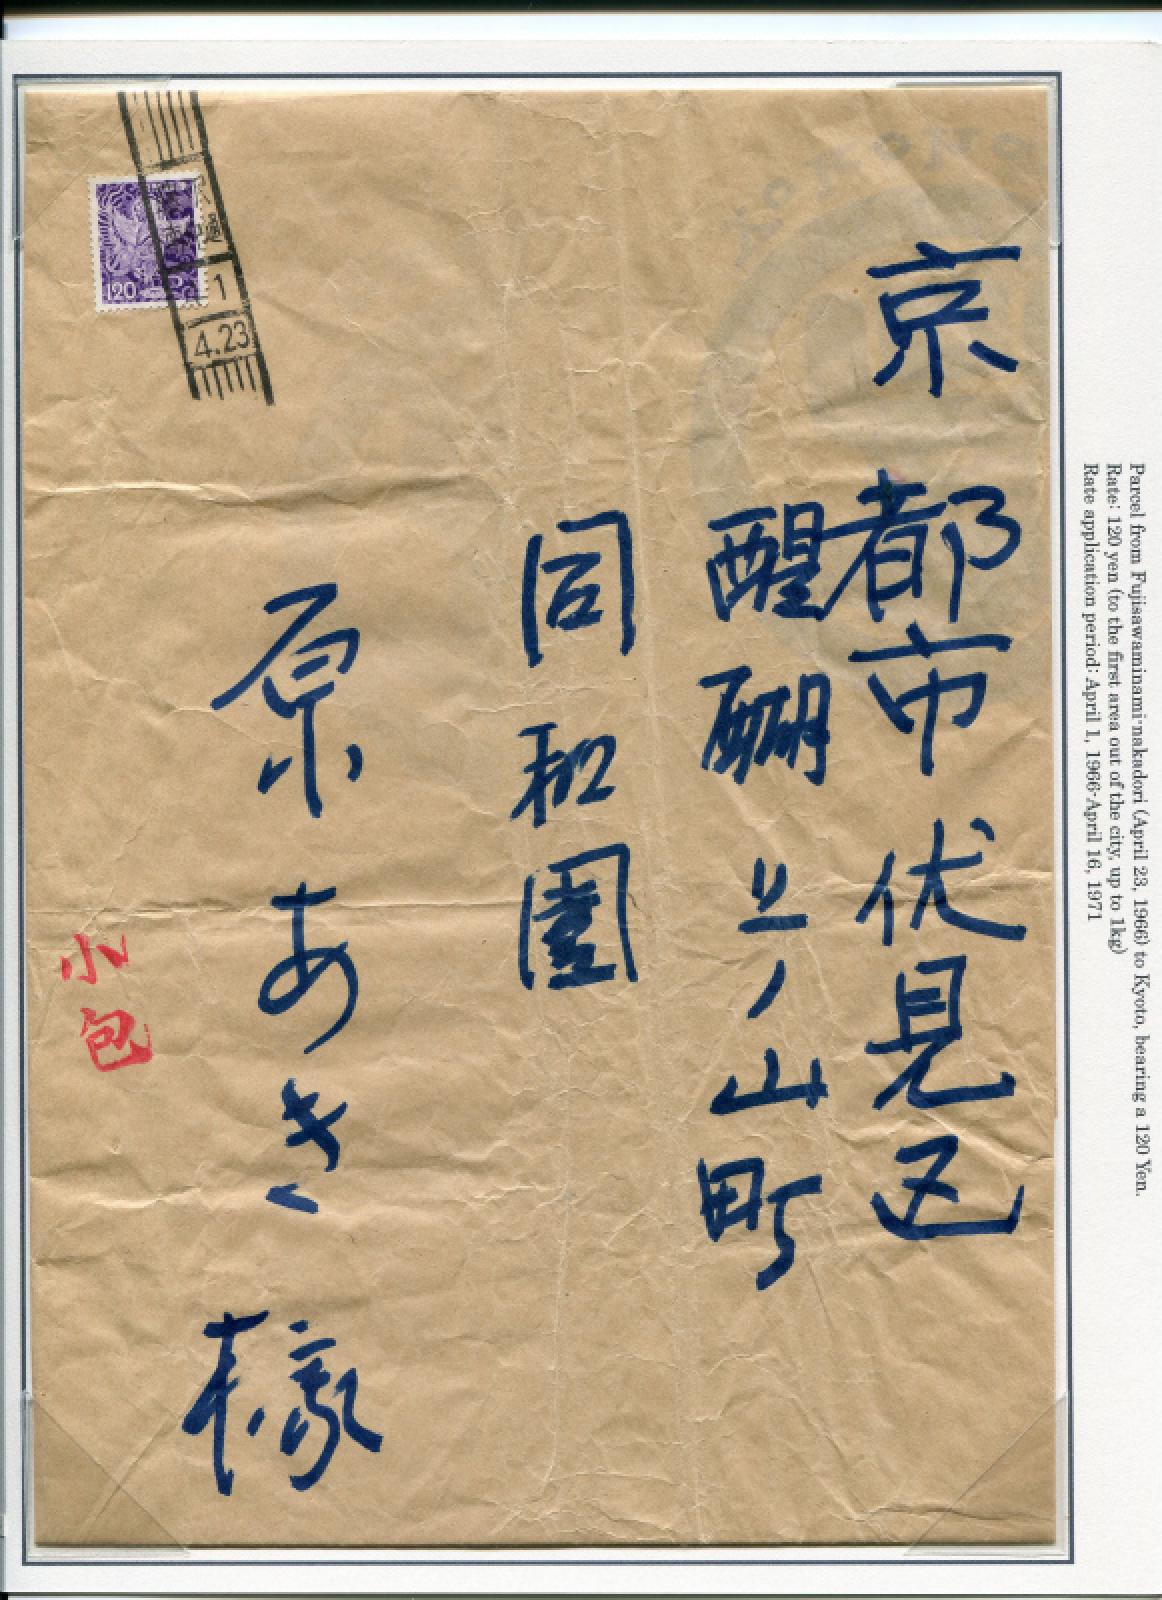 Parcel from Fujisawaminami-nakadori (April 23, 1966) to Kyoto, bearing a 120 Yen.
Rate: 120 yen (to the first area out of the city, up to 1kg)
Rate application period: April 1, 1966-April 16, 1971
京都市伏見区
醒醐上ノ山町
同和園
原あき様
小包
120
1
4.23